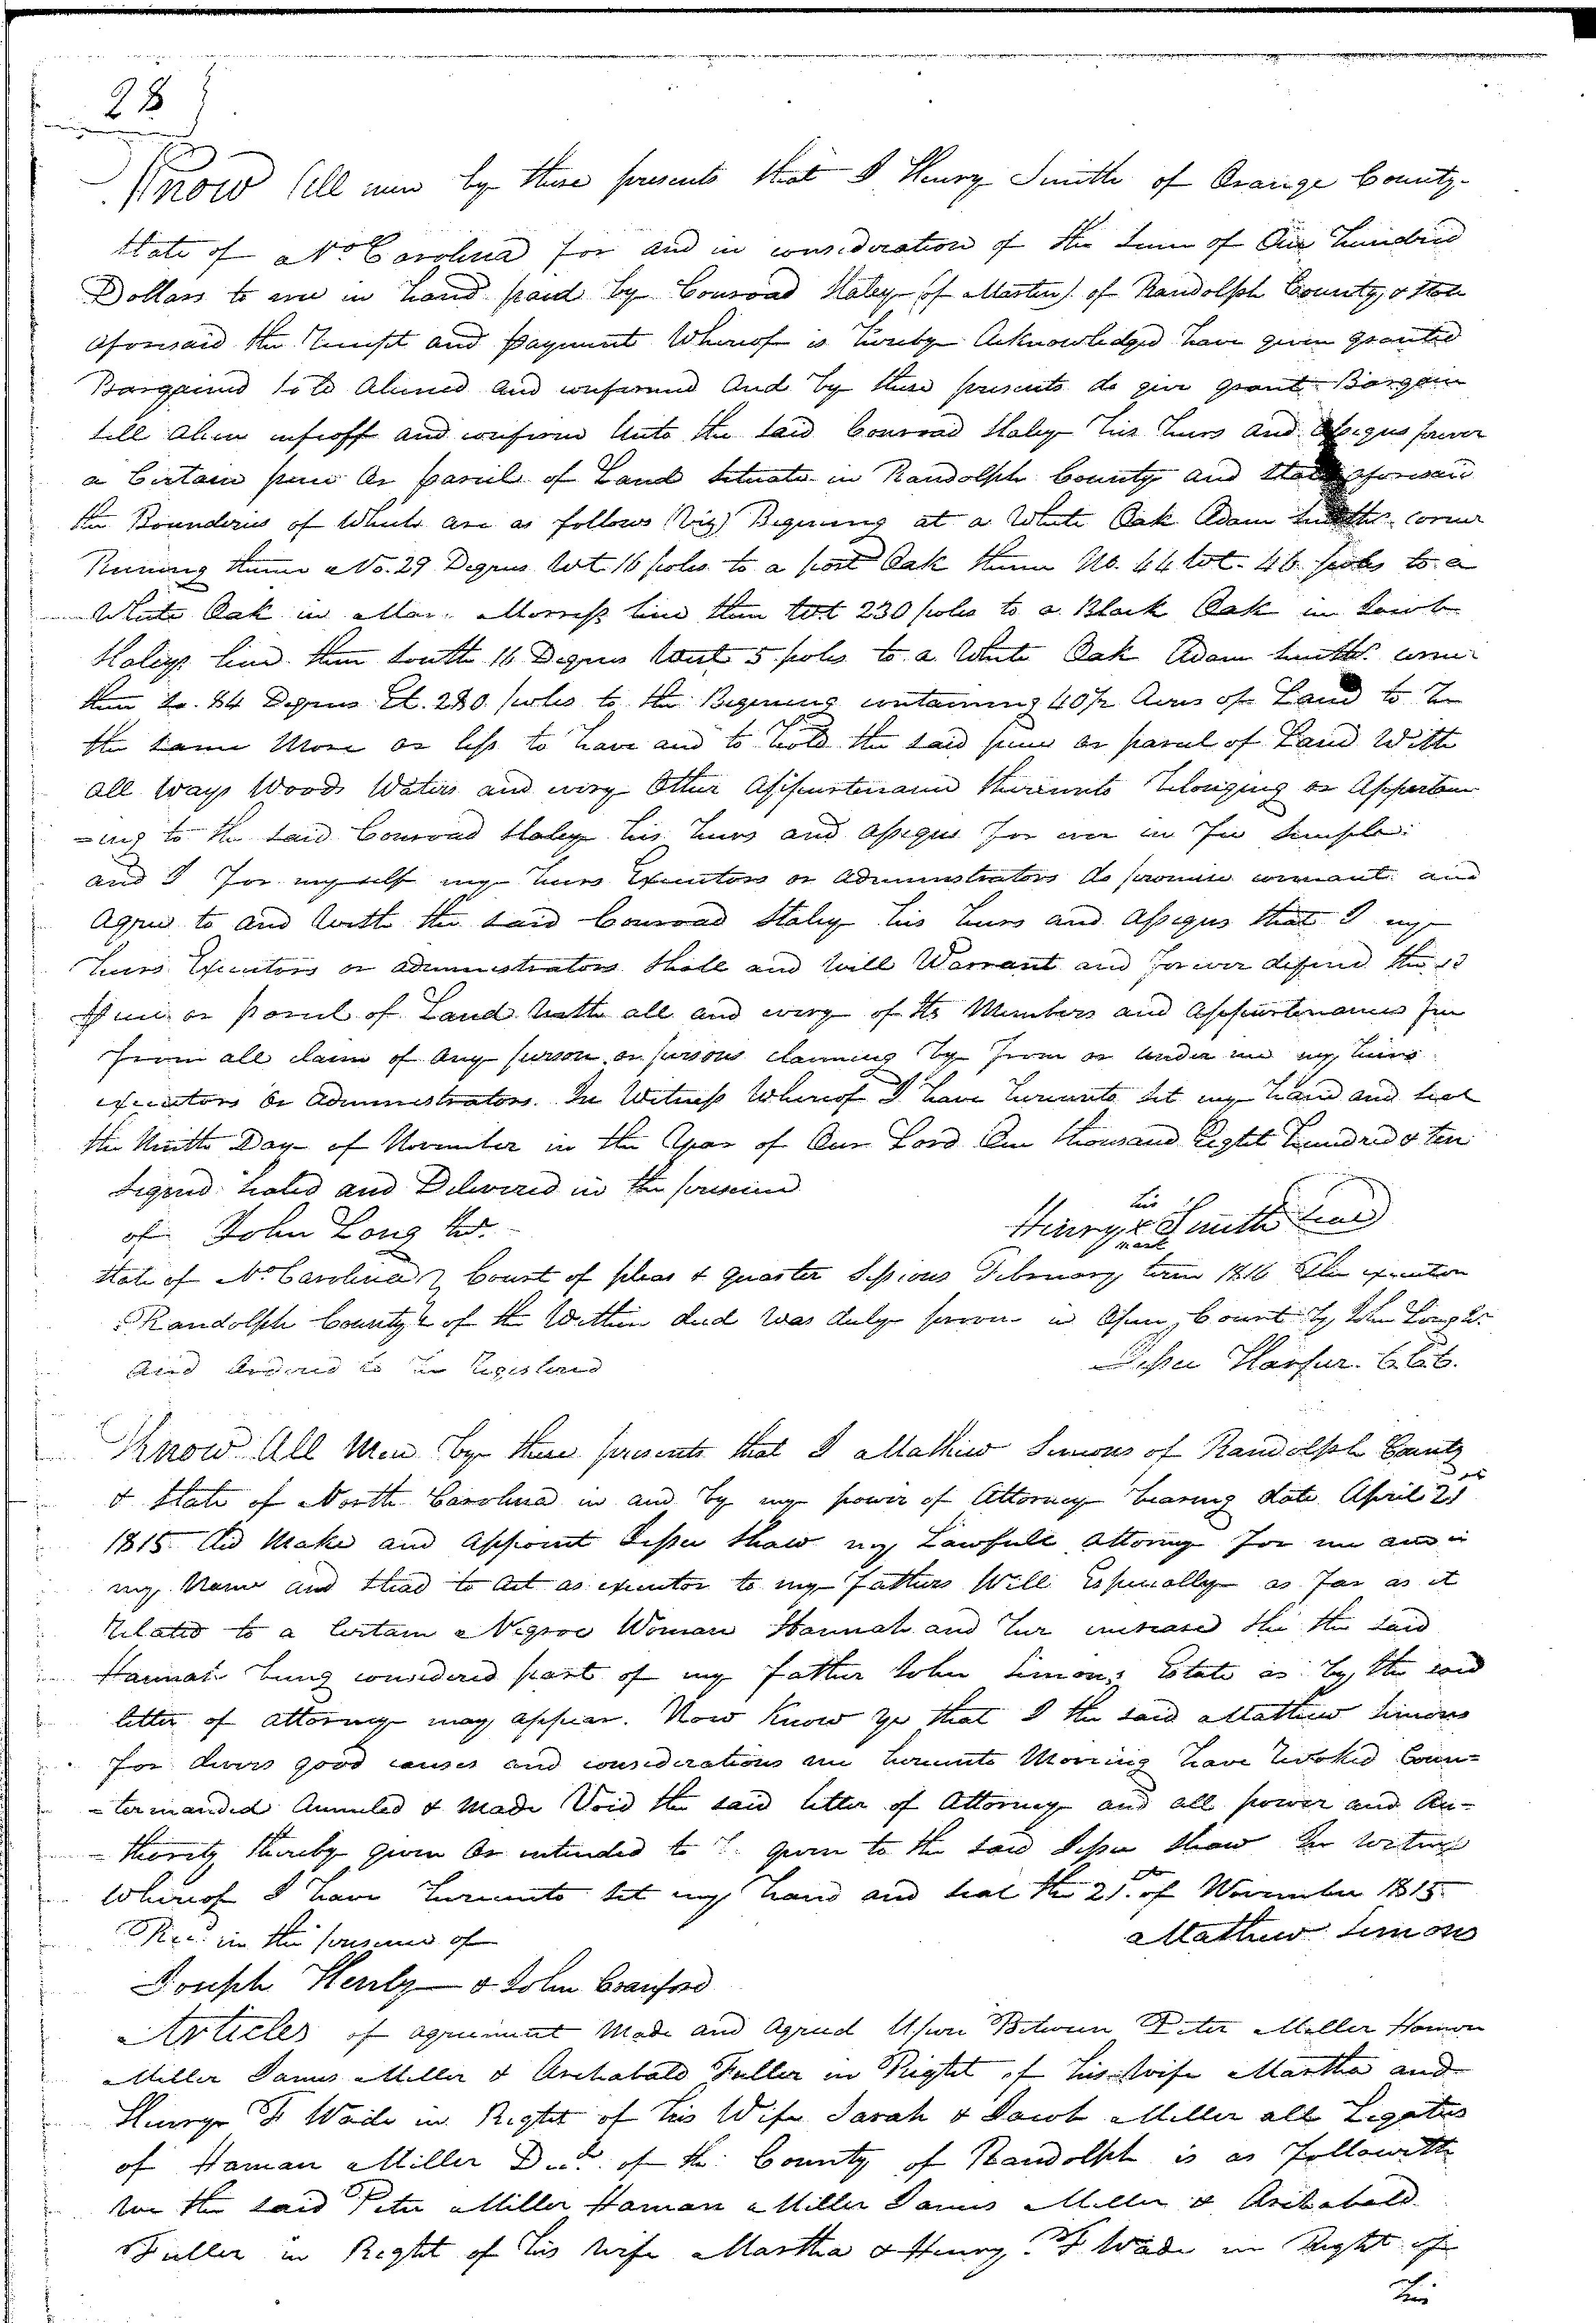 28
Know all men by these presents that I Henry Smith of Orange County
State of No. Carolina for and in consideration of the Sum of One Hundred
Dollars to me in hand paid by Conrood Staley (of Marten) of Randolph County, & State
aforesaid the Receipt and Payment Whereof is hereby Acknowledged have given granted
Bargained Sold Aliened and confirmed And by these presents do give grant Bargain
sell Alien infeoff and confirm Unto the said Conrood Staley his heirs and Assigns forever
a Certain peice or parcil of Land Situate in Randolph County and State aforesaid
the Bounderies of Which are as follows (Viz) Begining at a White Oak Adam Smiths corner
Runing thence No. 29 Degrees Wt 16 poles to a post Oak thence No. 44 Wt. 46 poles to a
White Oak in Mar. Morress line then Wt 230 poles to a Black Oak in Jacob
Staleys line then South 16 Degrees West 5 poles to a White Oak Adam Smiths corner
then So. 84 Degrees Et. 280 poles to the Begining containing 40½ Acres of Land to be
the same More or less to have and to hold the said peice or parcel of Land With
all Ways Woods Waters and every Other Appurtenance thereunto belonging or Apperten
-ing to the said Conrood Staley his heirs and assigns for ever in Fee Simple:
and I For myself my heirs Executors or Administrators do promise covenant and
Agree to and With the said Conrood Staley his heirs and assigns that I my
heirs Executors or administrators Shall and will Warrant and forever defend the sd
Peice or parcel of Land With all and every of its Members and Appurtenances free
From all claim of Any person or persons claiming by from or Under me my heirs
executors or Administrators. In Witness Whereof I have hereunto set my hand and seal
the Ninth Day of November in the Year of Our Lord One thousand Eight hundred & ten
Signed Sealed and Delivered in the presence
of John Long
his
Henry x Smith Seal
mark
State of No. Carolina } Court of pleas & quarter Sessions February term 1816 The execution
Randolph County } of the Within deed was duly proven in Open Court by John Long
And Ordered to be Registered
Jesse Harper C.C.C.
Know All Men by these presents that I Mathew Simons of Randolph County
& State of North Carolina in and by my power of Attorney bearing date April 21st
1815 did Make and Appoint Jesse Shaw my Lawfull Attorney for me and in
my Name and Stead to Act as executor to my Fathers Will Especially as far as it
Related to a Certain Negroe Woman Hannah and her increase She the said
Hannah being considered part of my Father John Simons Estate as by the said
letter of attorney may appear. Now Know ye that I the said Mathew Simons
for divers good causes and considerations me hereunto Moveing have Revoked Coun-
-termanded Annuled & Made Void the said letter of Attorney and all power and Au-
-thority thereby given or intended to be given to the said Jesse Shaw In Witness
Whereof I have hereunto set my hand and seal the 21st of November 1815
Mathew Simons
in the presence of
Joseph Henly & John Cranford
Articles of agreement Made and Agreed Upon Between Peter Miller Haman
Miller James Miller & Archabald Fuller in Right of his Wife Martha and
Henry F. Wade in Right of his Wife Sarah & Jacob Miller all Legatees
of Haman Miller Decd. of the County of Randolph is as Followeth
We the said Peter Miller Haman Miller James Miller & Archabald
Fuller in Right of his Wife Martha & Henry F. Wade in Right of
his